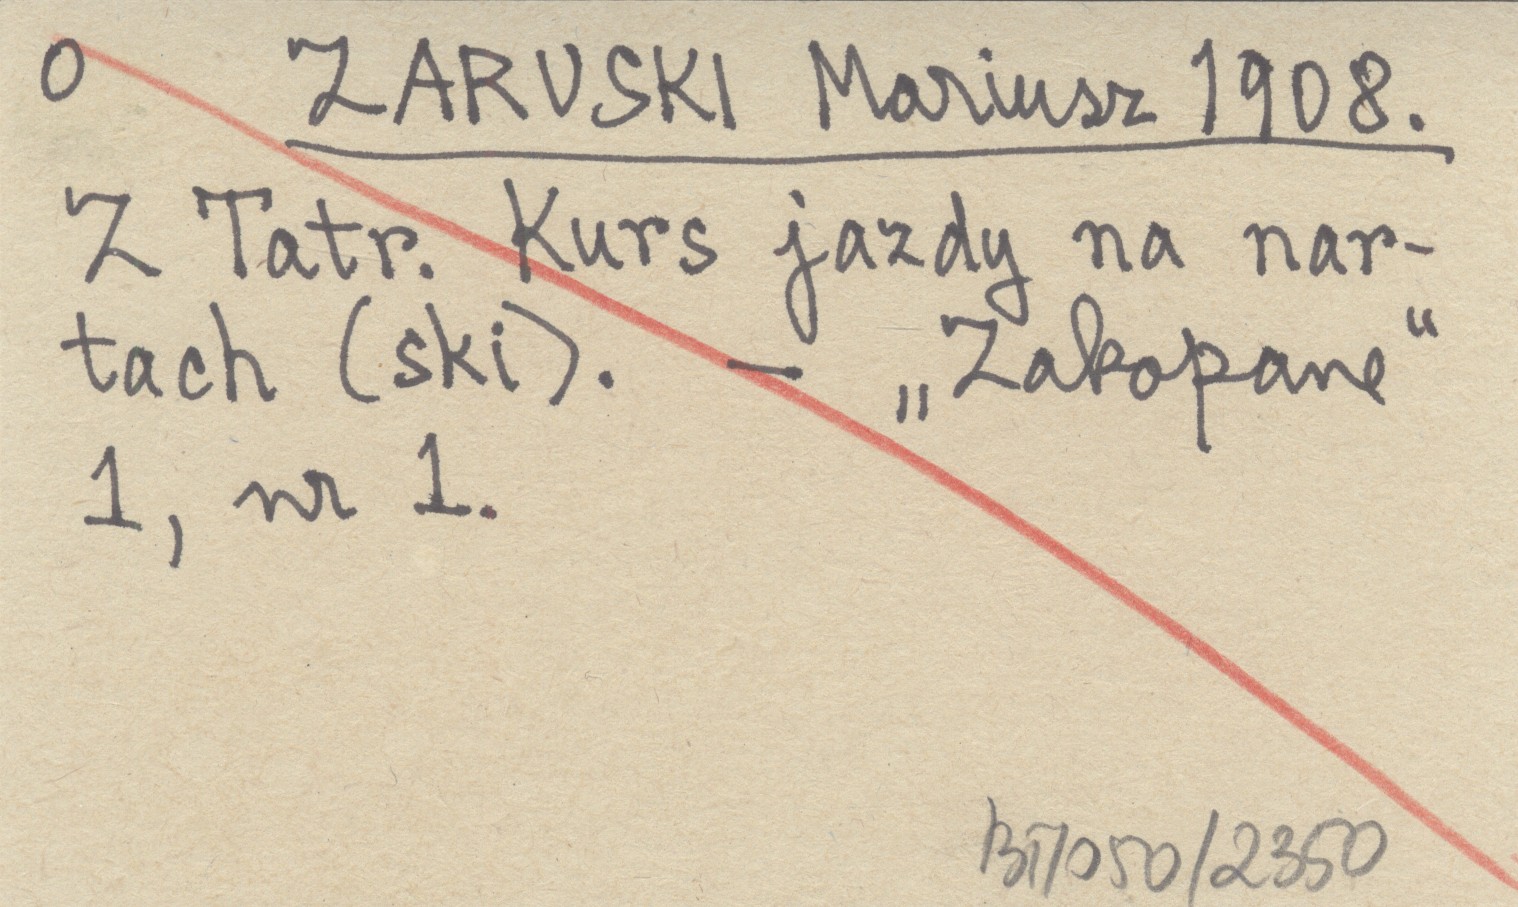 O ZARUSKI Mariusz 1908.
Z Tatr. Kurs jazdy na nar-
tach (ski). — „Zakopane“
1, nr 1.
BT/050/2350